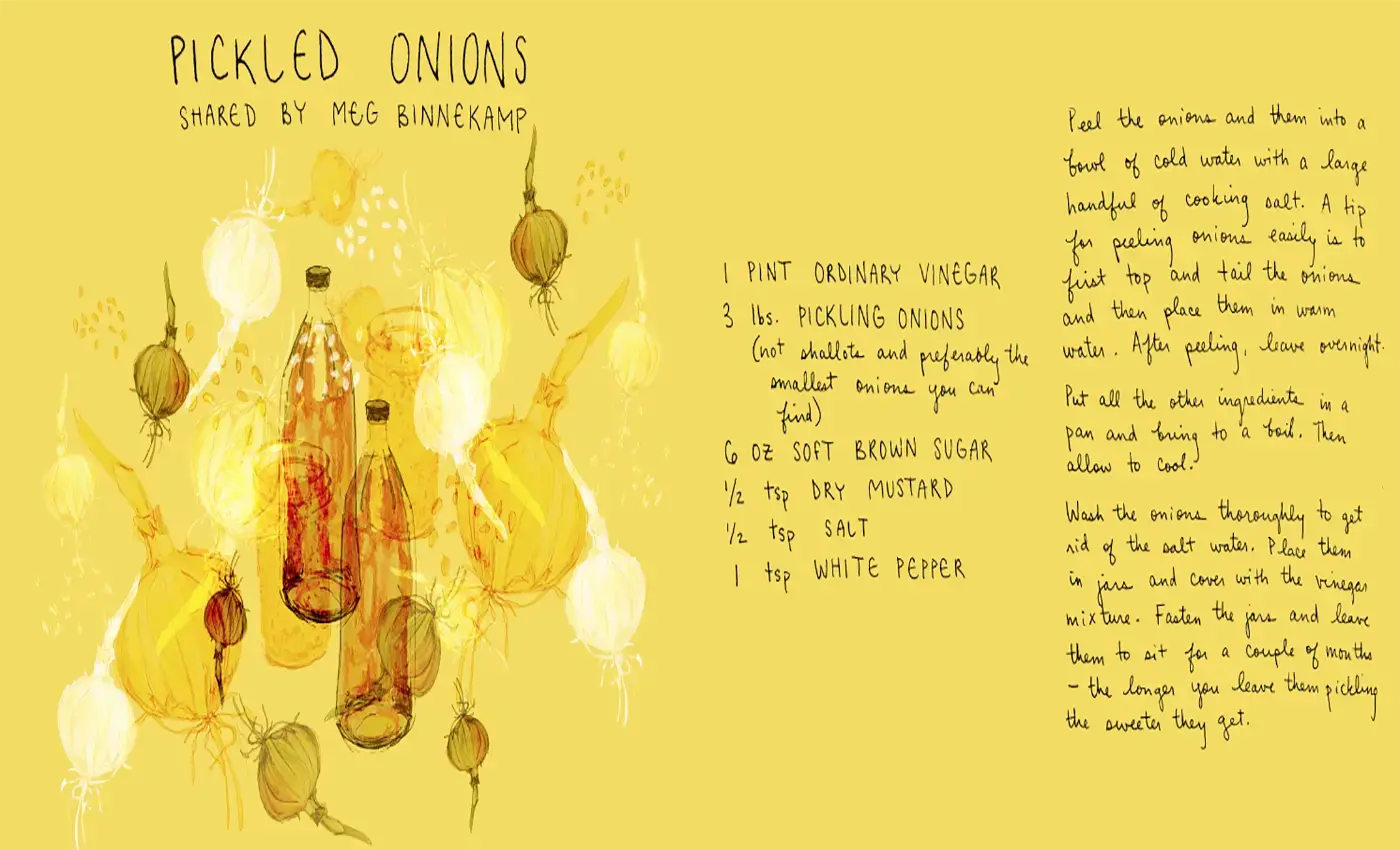 PICKLED ONIONS
SHARED BY MEG BINNEKAMP
1 PINT ORDINARY VINEGAR
3 lbs. PICKLING ONIONS
(not shallots and preferably the
smallest onions you can
find)
6 OZ SOFT BROWN SUGAR
1/2 tsp DRY MUSTARD
1/2 tsp SALT
1 tsp WHITE PEPPER
Peel the onions and them into a
bowl of cold water with a large
handful of cooking salt. A tip
for peeling onions easily is to
first top and tail the onions
and then place them in warm
water. After peeling, leave overnight.
Put all the other ingredients in a
pan and bring to a boil. Then
allow to cool.
Wash the onions thoroughly to get
rid of the salt water. Place them
in jars and cover with the vinegar
mixture. Fasten the jars and leave
them to sit for a couple of months
- the longer you leave them pickling
the sweeter they get.